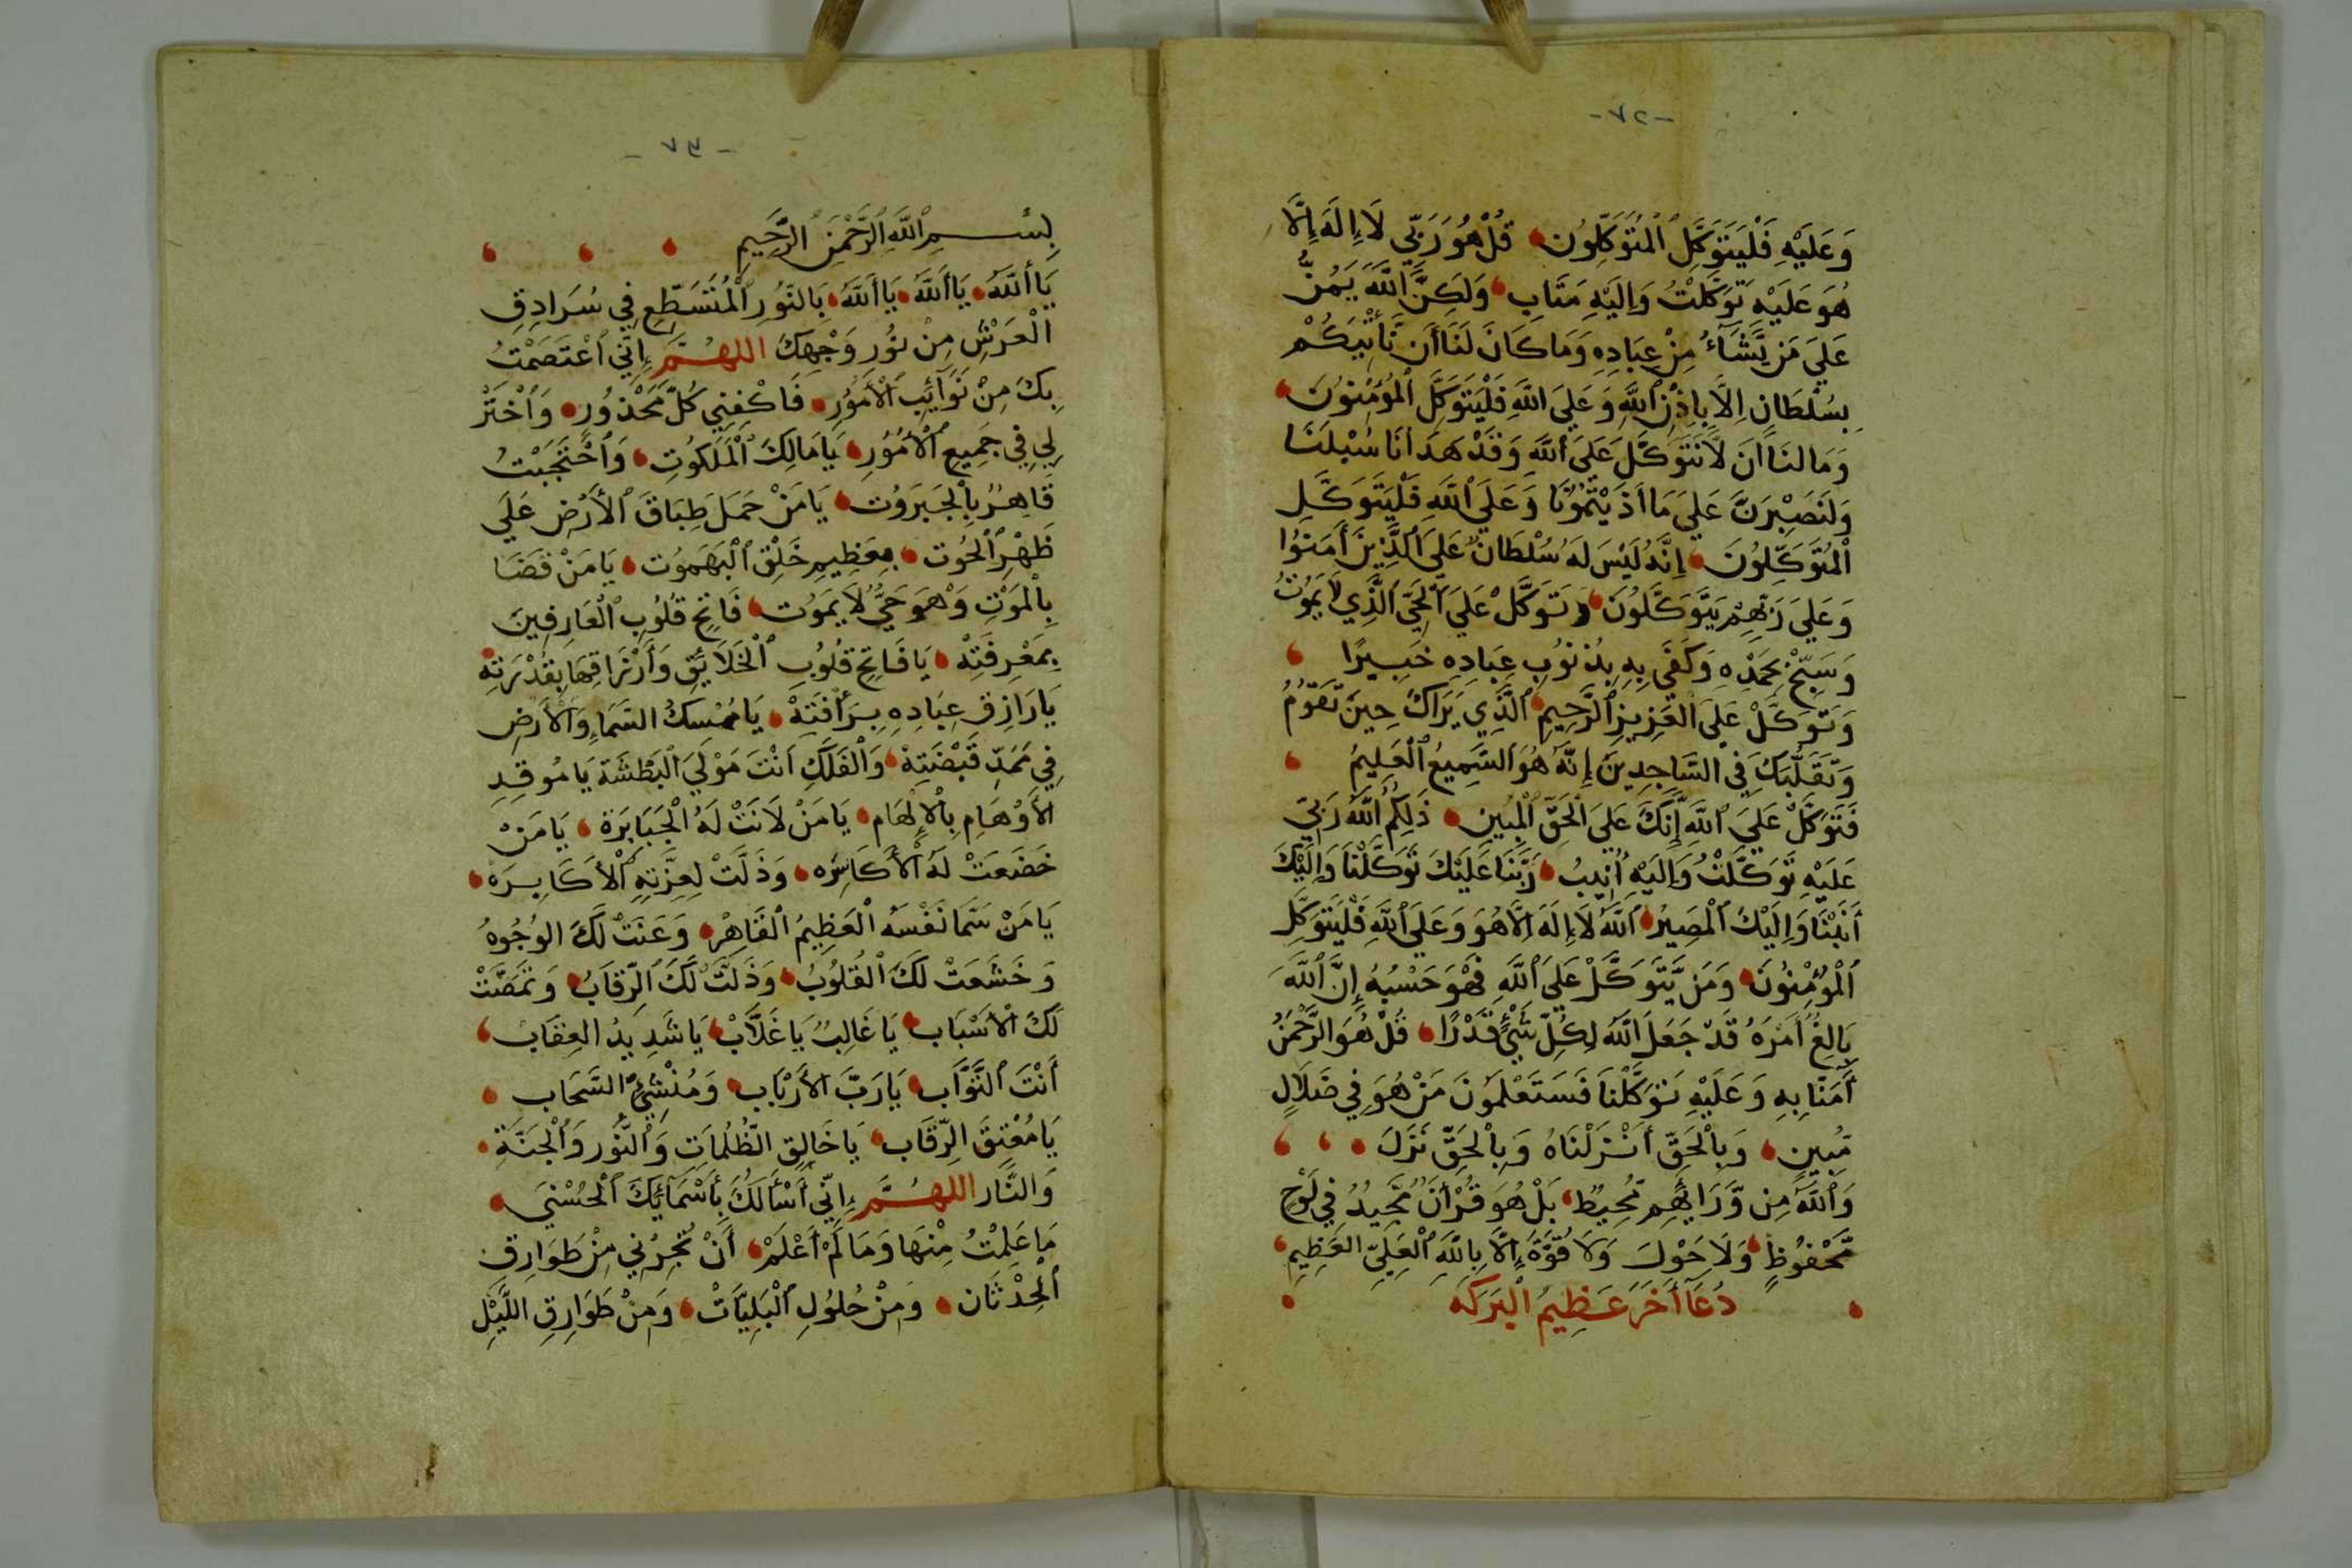 -٧٢-
وَعَلَيْهِ فَلْيَتَوَكَّلِ ٱلْمُتَوَكِّلُونَ قُلْ هُوَ رَبِّي لَا إِلَهَ إِلَّا
هُوَ عَلَيْهِ تَوَكَّلْتُ وَإِلَيْهِ مَتَابِ وَلَكِنَّ ٱللَّهَ يَمُنُّ
عَلَى مَن يَّشَآءُ مِنْ عِبَادِهِ وَمَا كَانَ لَنَا أَن نَّأْتِيَكُمْ
بِسُلْطَانٍ إِلَّا بِإِذْنِ ٱللَّهِ وَعَلَى اللَّهِ فَلْيَتَوَكَّلِ ٱلْمُؤْمِنُونَ
وَمَا لَنَا أَن لَّا نَتَوَكَّلَ عَلَى ٱللَّهِ وَقَدْ هَدَانَا سُبْلَنَا
وَلَنَصْبِرَنَّ عَلَى مَا أَذَيْتُمُونَا وَعَلَى ٱللَّهِ فَلْيَتَوَكَّلِ
ٱلْمُتَوَكِّلُونَ إِنَّهُ لَيْسَ لَهُ سُلْطَانٌ عَلَى ٱلَّذِينَ أَمَنُوا
وَعَلَى رَبِّهِمْ يَتَوَكَّلُونَ وَتَوَكَّلْ عَلَى ٱلْحَيِّ ٱلَّذِي لَا يَمُوتُ
وَسَبِّحْ بِحَمْدِهِ وَكَفَى بِهِ بِذُنُوبِ عِبَادِهِ خَبِيرًا
وَتَوَكَّلْ عَلَى ٱلْعَزِيزِ ٱلرَّحِيمِ ٱلَّذِي يَرَاكَ حِينَ تَقُومُ
وَتَقَلُّبَكَ فِي السَّاجِدِينَ إِنَّهُ هُوَ ٱلسَّمِيعُ ٱلْعَلِيمُ
فَتَوَكَّلْ عَلَى ٱللَّهِ إِنَّكَ عَلَى ٱلْحَقِّ ٱلْمُبِينِ ذَلِكُمُ ٱللَّهُ رَبِّيَ
عَلَيْهِ تَوَكَّلْتُ وَإِلَيْهِ أُنِيبُ رَبَّنَا عَلَيْكَ تَوَكَّلْنَا وَإِلَيْكَ
أَنَبْنَا وَإِلَيْكَ ٱلْمَصِيرُ ٱللَّهُ لَا إِلَهَ إِلَّا هُوَ وَعَلَى ٱللَّهِ فَلْيَتَوَكَّلِ
ٱلْمُؤْمِنُونَ وَمَن يَّتَوَكَّلْ عَلَى ٱللَّهِ فَهُوَ حَسْبُهُ إِنَّ ٱللَّهَ
بَالِغُ أَمْرَهُ قَدْ جَعَلَ ٱللَّهُ لِكُلِّ شَيْءٍ قَدْرًا قُلْ هُوَ الرَّحْمَنُ
أَمَنَّا بِهِ وَعَلَيْهِ تَوَكَّلْنَا فَسَتَعْلَمُونَ مَنْ هُوَ فِي ضَلَالٍ
مُّبِينٍ وَبِٱلْحَقِّ أَنْزَلْنَاهُ وَبِٱلْحَقِّ نَزَلَ
وَٱللَّهُ مِن وَّرَائِهِم مُّحِيطٌ بَلْ هُوَ قُرْأَنٌ مَّجِيدٌ فِي لَوْحٍ
مَّحْفُوظٍ وَلَا حَوْلَ وَلَا قُوَّةَ إِلَّا بِاللَّهِ ٱلْعَلِيِّ العَظِيمِ
دُعَآ أَخَرَ عَظِيمُ ٱلْبَرَكَه
-٧٣-
بِسْمِ ٱللَّهِ ٱلرَّحْمَنِ ٱلرَّحِيمِ
يَا أَللَّهُ يَا أَللَّهُ يَا أَللَّهُ بِالنُّورِ ٱلْمُتَسَطِّعِ فِي سُرَادِقِ
الْعَرْشِ مِنْ نُورِ وَجْهِكَ اللهُمَّ إِنِّي ٱعْتَصَمْتُ
بِكَ مِنْ نَوَآئِبِ ٱلْأُمُورِ فَاكْفِنِي كُلَّ مَحْذُورٍ وَٱخْتَرْ
لِي فِي جَمِيعِ ٱلْأُمُورِ يَا مَالِكَ ٱلْمَلَكُوتِ وَٱحْتَجَبْتُ
قَاهِرٌ بِٱلْجَبَرَوُت يَا مَنْ حَمَلَ طِبَاقَ ٱلْأَرْضِ عَلَى
ظَهْرِ ٱلْحُوتِ بِعَظِيمِ خَلْقِ ٱلْبَهَمُوتِ يَا مَنْ قَضَا
بِالْمَوْتِ وَهُوَ حَيٌّ لَا يَمُوت فَاتِحَ قُلُوبِ ٱلْعَارِفِينَ
بِمَعْرِفَتِهْ يَا فَاتِحَ قُلُوبِ ٱلْخَلَائِقِ وَأَرْزَاقِهَا بِقُدْرَتِهِ
يَا رَازِقَ عِبَادِهِ بِرَأْفَتِهْ يَا مُمْسِكُ السَّمَاءِ وَالْأَرْضِ
فِي مَمَدِّ قَبْضَتِهْ وَالْفَلَكِ أَنْتَ مَوْلَى ٱلْبَطْشَةِ يَا مُوقِدِ
الْأَوْهَامِ بِٱلْإِلْهَامِ يَا مَنْ لَانَتْ لَهُ ٱلْجَبَابِرَة يَا مَنْ
خَضَعَتْ لَهُ ٱلْأَكَاسِرَه وَذَلَّتْ لِعِزَّتِهِ ٱلْأَكَابِرَه
يَا مَنْ سَمَّا نَفْسَهُ ٱلْعَظِيمُ ٱلْقَاهِرْ وَعَنَتْ لَكَ الوُجُوهُ
وَخَشَعَتْ لَكَ ٱلْقُلُوبُ وَذَلَّتْ لَكَ ٱلرِّقَابُ
لَكَ الْأَسْبَاب يَا غَالِبُ يَا غَلَّابْ يَا شَدِيدُ العِقَابْ
أَنْتَ ٱلتَّوَّاب يَا رَبَّ الْأَرْبَاب وَمُنْشِئَ السَّحَاب
يَا مُعْتِقَ الرِّقَاب يَا خَالِقَ الظُّلُمَاتِ وَٱلنُّورِ وَٱلْجَنَّةِ
وَالنَّار اللهُمَّ إِنِّي أَسْأَلُكَ بِأَسْمَآئِكَ ٱلْحُسْنَى
مَا عَلِمْتُ مِنْهَا وَمَا لَمْ أَعْلَمْ أَنْ تُجِرْنِي مِنْ طَوَارِقِ
ٱلْحِدْثَان وَمِنْ حُلُولِ ٱلْبَلِيَّاتْ وَمِنْ طَوَارِقِ اللَّيْلِ